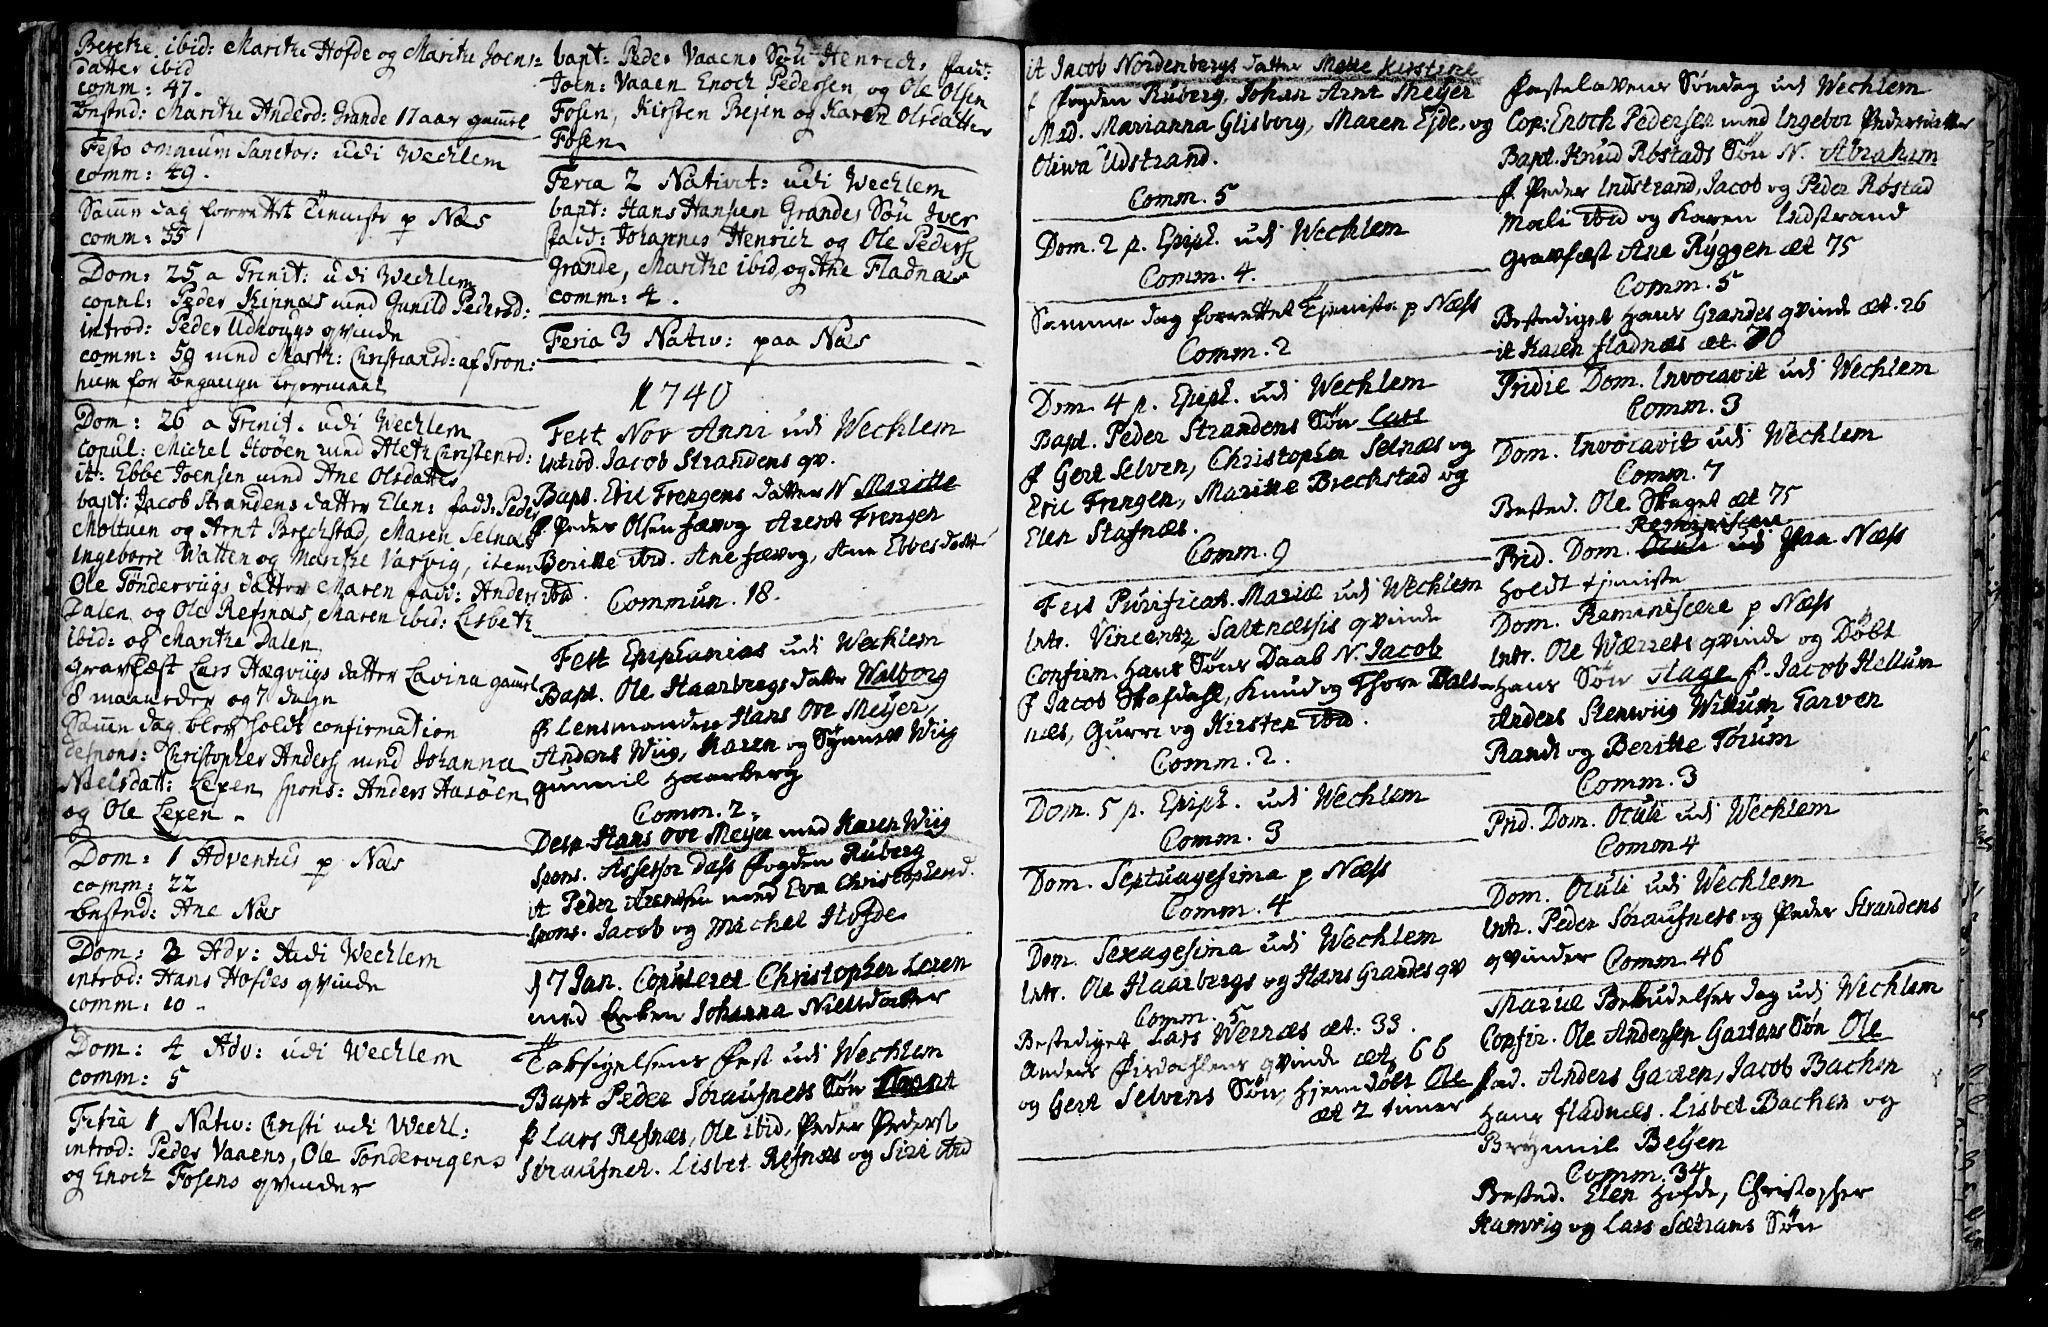 Beretke ibid: Maritke Hofde og Maritke Joens=
datter ibid
comm: 47.
bested: Maritke Andersd: Grande 17 aar gamel
Festo omnium Sanctor: udi Wechlem
comm: 49.
Samme dag forrettet Tieniste p Næs
comm: 35
Dom: 25 a Trinit: udi Wechlem
copul: Peder Kipnæs med Gunild Pedersd:
introd: Peder Udhougs qvinde
comm: 59 med Marth: Christiansd: af Tron:
hiem for begangen leiermaal
Dom: 26 a Trinit. udi Wechlem
copul: Michel Høøen med Aleth Christensd:
it: Ebbe Joensen med Ane Olsdatter
bapt: Jacob Strandens datter Elen: fadd: Peder
Moltuen og Arnt Brechstad, Maren Selnæs
Ingeborre Watten og Maritke Varvig, item
Ole Tøndervigs datter Maren fadd: Anders
Dalen og Ole Refsnæs, Maren ibid: Lisbeth
ibid: og Maritke Dalen
gravfæst Lars Hægvigs datter Lavina gamel
8 maaneder og 7 dage
Samme dag blev holdt confirmation
despons: Christopher Anders med Johanna
Nielsdatt: Lexen spons: Anders Aasøen
og Ole Lexen -
Dom: 1 Adventus p Næs
comm: 22
bested: Ane Næs
Dom: 3 Adv: udi Wechlem
introd: Hans Hofdes qvinde
comm: 10 -
Dom: 4 Adv: udi Wechlem
comm: 5
Feria 1 Nativ: Christi udi Wechl:
introd: Peder Vaaens, Ole Tondervigens
og Enoch Fosens qvinder
bapt: Peder Vaaens Søn Henrich, fadd:
Joen: Vaaen Enoch Pedersen, og Ole Olsen
Fosen, Kirsten Bejen og Karen Olsdatter
Fosen
Feria 2 Nativit: udi Wechlem
bapt: Hans Hansen Grandes Søn Iver
fadd: Johannes Henrich og Ole Peders
Grande, Maritke ibid, og Ane Fladnæs
comm: 4.
Feria 3 Nativ: paa Næs
1740
Fest Nov Anni udi Wechlem
Introd. Jacob Strandens qv.
Bapt. Eric Frengens datter N Maritte
f Peder Olsen fævog Arent Frengen
Beritte ibid. Ane fævog, Ane Ebbesdatt
ibid. Commun. 18.
Fest Epiphanias udi Wechlem
Bapt. Ole Haarbergs datter Walborg
f Lensmanden Hans Ove Meyer,
Anders Wiig, Karen og Synnev Wiig
gunnil Haarberg
Comm. 2.
Desp. Hans Ove Meyer med Karen Wiig
Spons. Assessor Dass fogden Ruberg
it Peder Arentsen med Eva Christophersd.
Spons. Jacob og Michel Hofde
17 Jan. Copuleret Christopher Lexen
med Enken Johanna Nielsdatter
Tacksigelsens Fest udi Wechlem
Bapt Peder Sørausnets Søn Arent
f Lars Refsnæs, Ole ibid, Peder Peders
Sørausnet. Lisbet Refsnæs og Siri ibid
it Jacob Nordenbergs datter Mette Kirstine
f fogden Ruberg, Johan Arnt Meyer
Mad. Marianna Glisborg, Maren Ejde, og
Oliwa Udstrand.
Comm. 5
Dom. 2 p. Epiph. udi Wechlem
Comm. 4.
Samme dag forrettet Tieniste p Næss
Comm. 2
Dom. 4 p. Epiph. udi Wechlem
Bapt. Peder Strandens Søn Lars
f Gert Selven, Christopher Selnæs og
Eric Frengen, Maritte Brechstad og
Elen Stafnæs.
Comm. 9
Fest Purificat. Mariæ udi Wechlem
Intr. Vincentz Saltnæssis qvinde
Confirm. Hans Søns Daab N. Jacob
f Jacob Skafdahl, Knud og Thore Balsnæs,
Gurri og Kirsten ibid.
Comm. 2.
Dom. 5 p. Epiph. udi Wechlem
Comm. 3
Dom. Septuagesima p Næss
Comm. 4
Dom. Sexagesima udi Wechlem
Intr. Ole Haarbergs og Hans Grandes qv
Comm. 5
Bestediget Lars Wernæs æt. 33.
Anders Firdahlens qvinde æt. 66
og Gert Selvens Søn, Hjemdøbt Ole
æt 2 timer
Fastelavens Søndag udi Wechlem
Cop: Enoch Pedersen med Ingebor Pedersdatter
Bapt. Knud Røstads Søn N. Abraham
f Peder Indstrand, Jacob og Peder Røstad
Mali ibid og Karen Indstrand
gravfæst Ane Ryggen æt 75
Comm. 5
Bestediget Hans Grandes qvinde æt. 26
it Karen fladnæs æt 70
Pridie Dom. Invocavit udi Wechlem
Comm. 3
Dom. Invocavit udi Wechlem
Comm. 7
Bested. Ole Skaget æt 75
Reminiscere
Prid. Dom. Oculi udi paa Næss
holdt tjeniste
Dom. Reminiscere p Næss
Intr. Ole Wærrets qvinde og Døbt
Hans Søn Hage f. Jacob Hellum
Anders Stenwiig Willum Tarven
Randi og Beritte Tørum
Comm. 3
Prid. Dom. Oculi udi Wechlem
Comm 4
Dom. Oculi udi Wechlem
Intr. Peder Sørausnets og Peder Strandens
qvinder Comm. 46
Mariæ Bebudelses dag udi Wechlem
Confir. Ole Andersen Gartans Søn Ole
fad. Anders Garten, Jacob Bachen
Hans fladnæs. Lisbet Bachen og
Brynnil Bejen
Comm. 34
Bested. Elen Hofde, Christopher
Hamvig og Lars Sætrans Søn